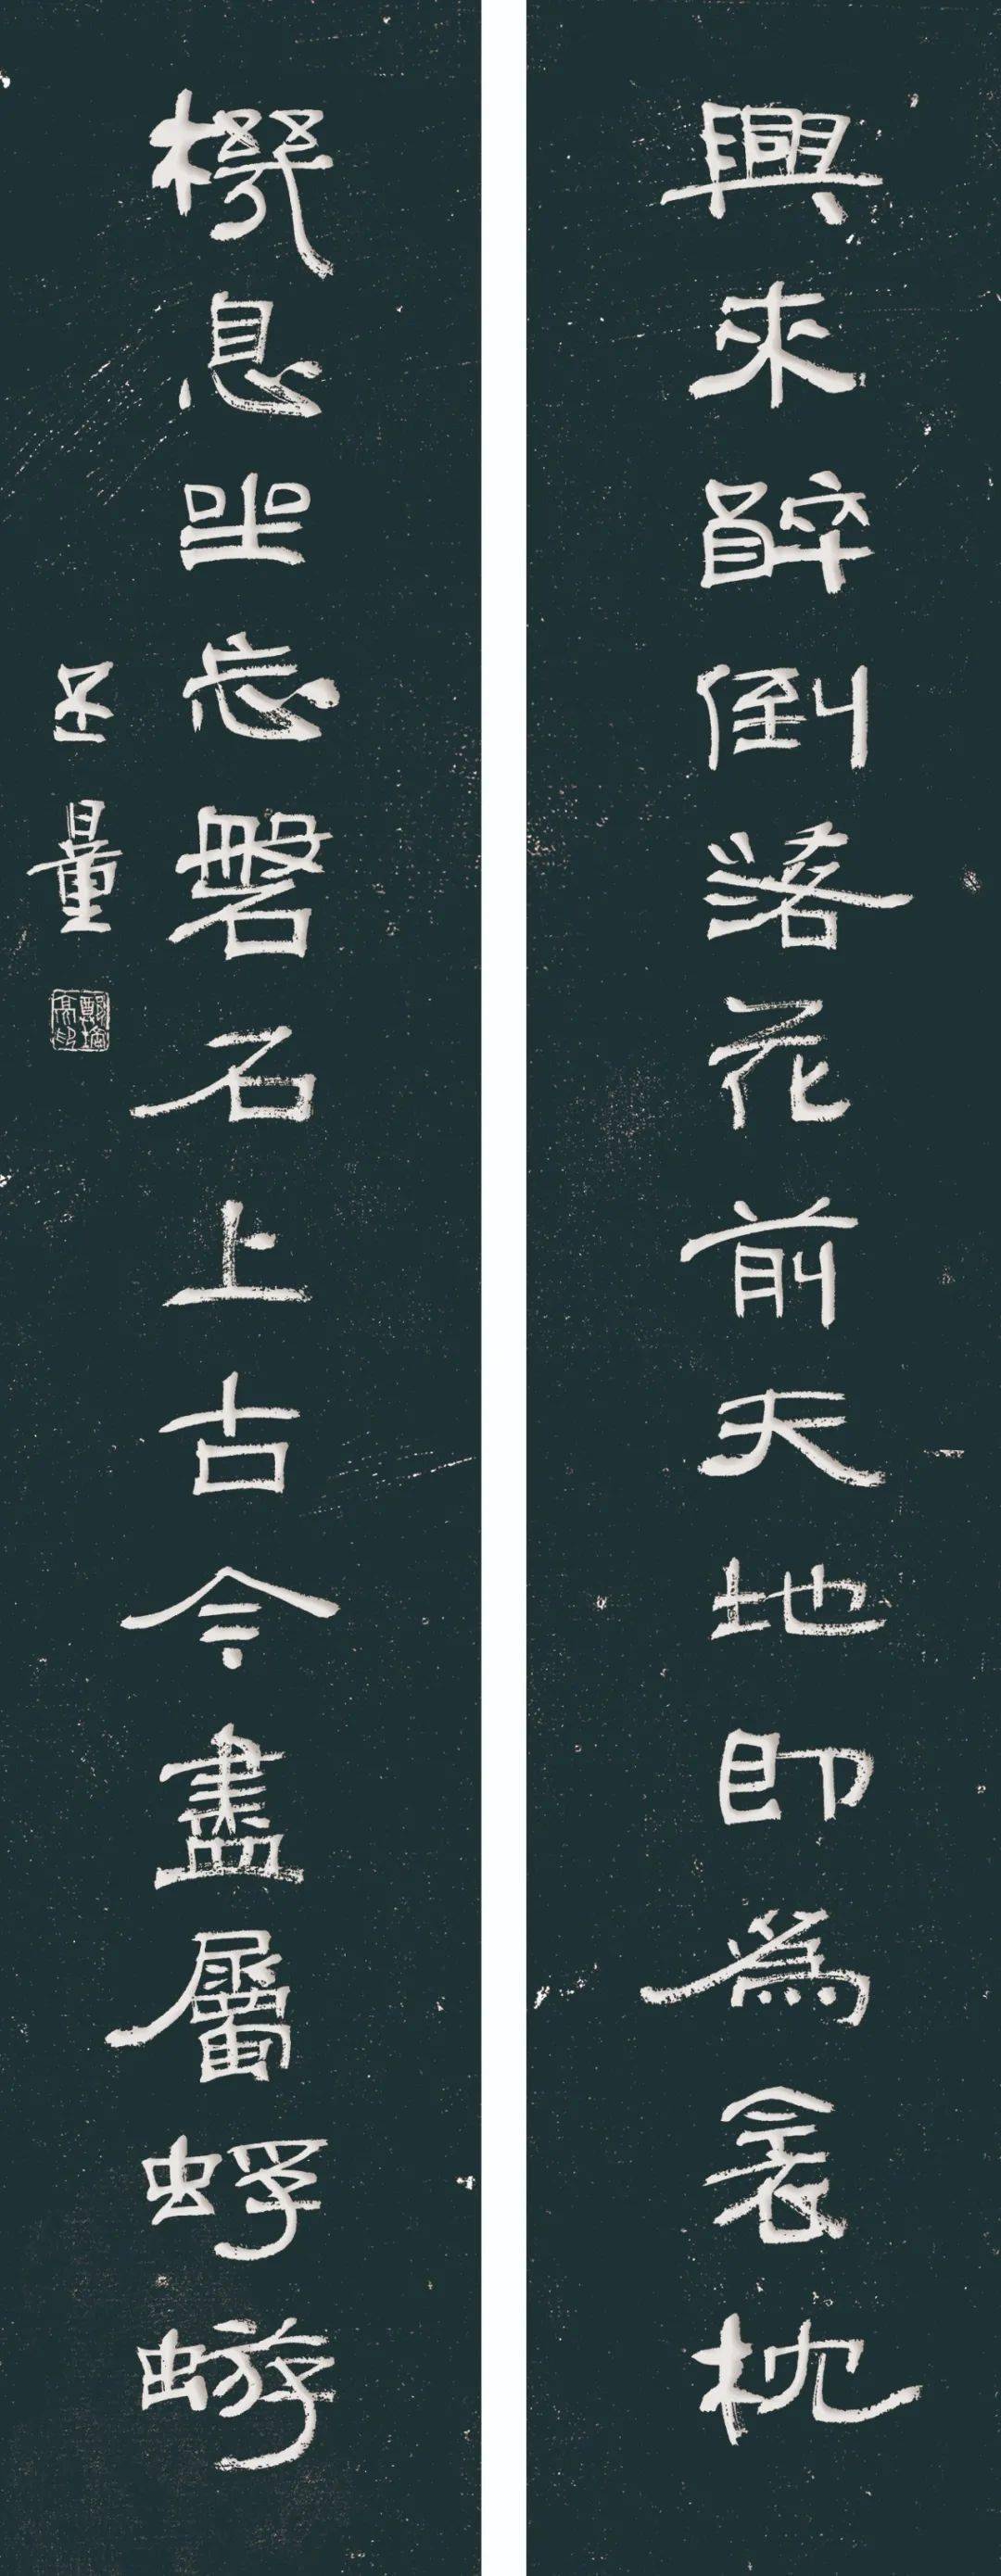 興來醉倒落花前天地即爲衾枕
機息坐忘磐石上古今盡屬蜉蝣
量